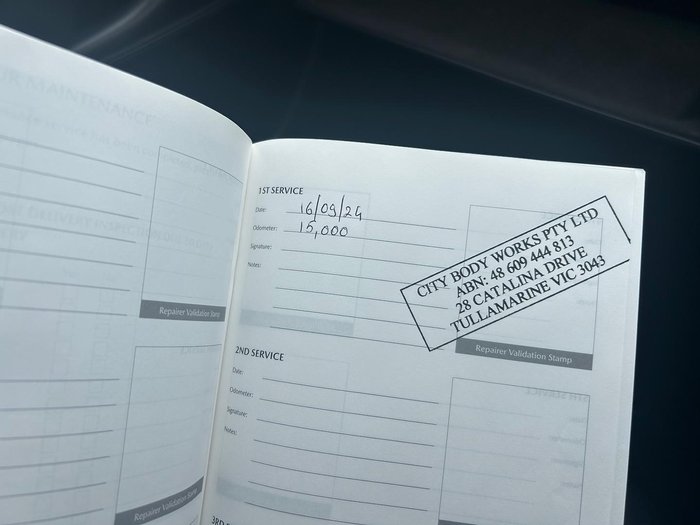 UR MAINTENANCE
Repairer Validation Stamp
Repairer Validation Stamp
1ST SERVICE
Date: 16/09/24
Odometer: 15,000
Signature:
Notes:
CITY BODY WORKS PTY LTD
ABN: 48 609 444 813
28 CATALINA DRIVE
TULLAMARINE VIC 3043
Repairer Validation Stamp
2ND SERVICE
Date:
Odometer:
Signature:
Notes:
3RD